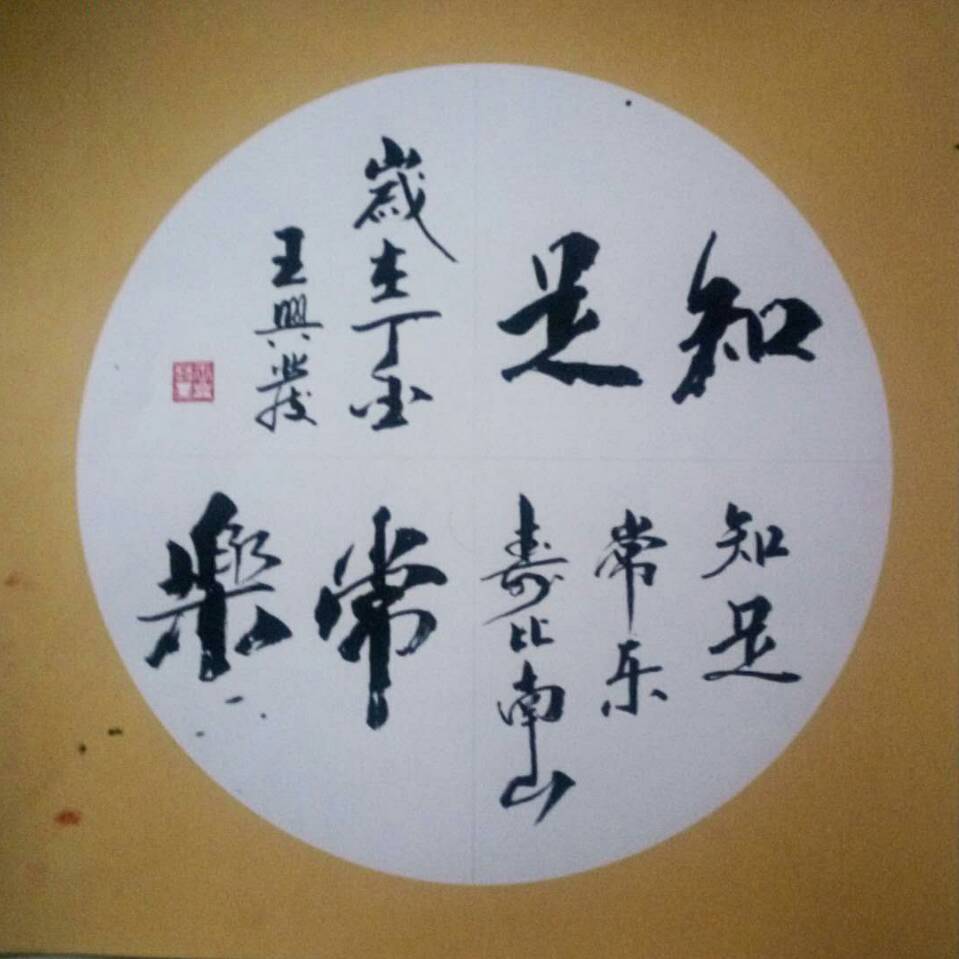 知足
常樂
知足
常乐
寿比南山
歲在丁酉
王興發